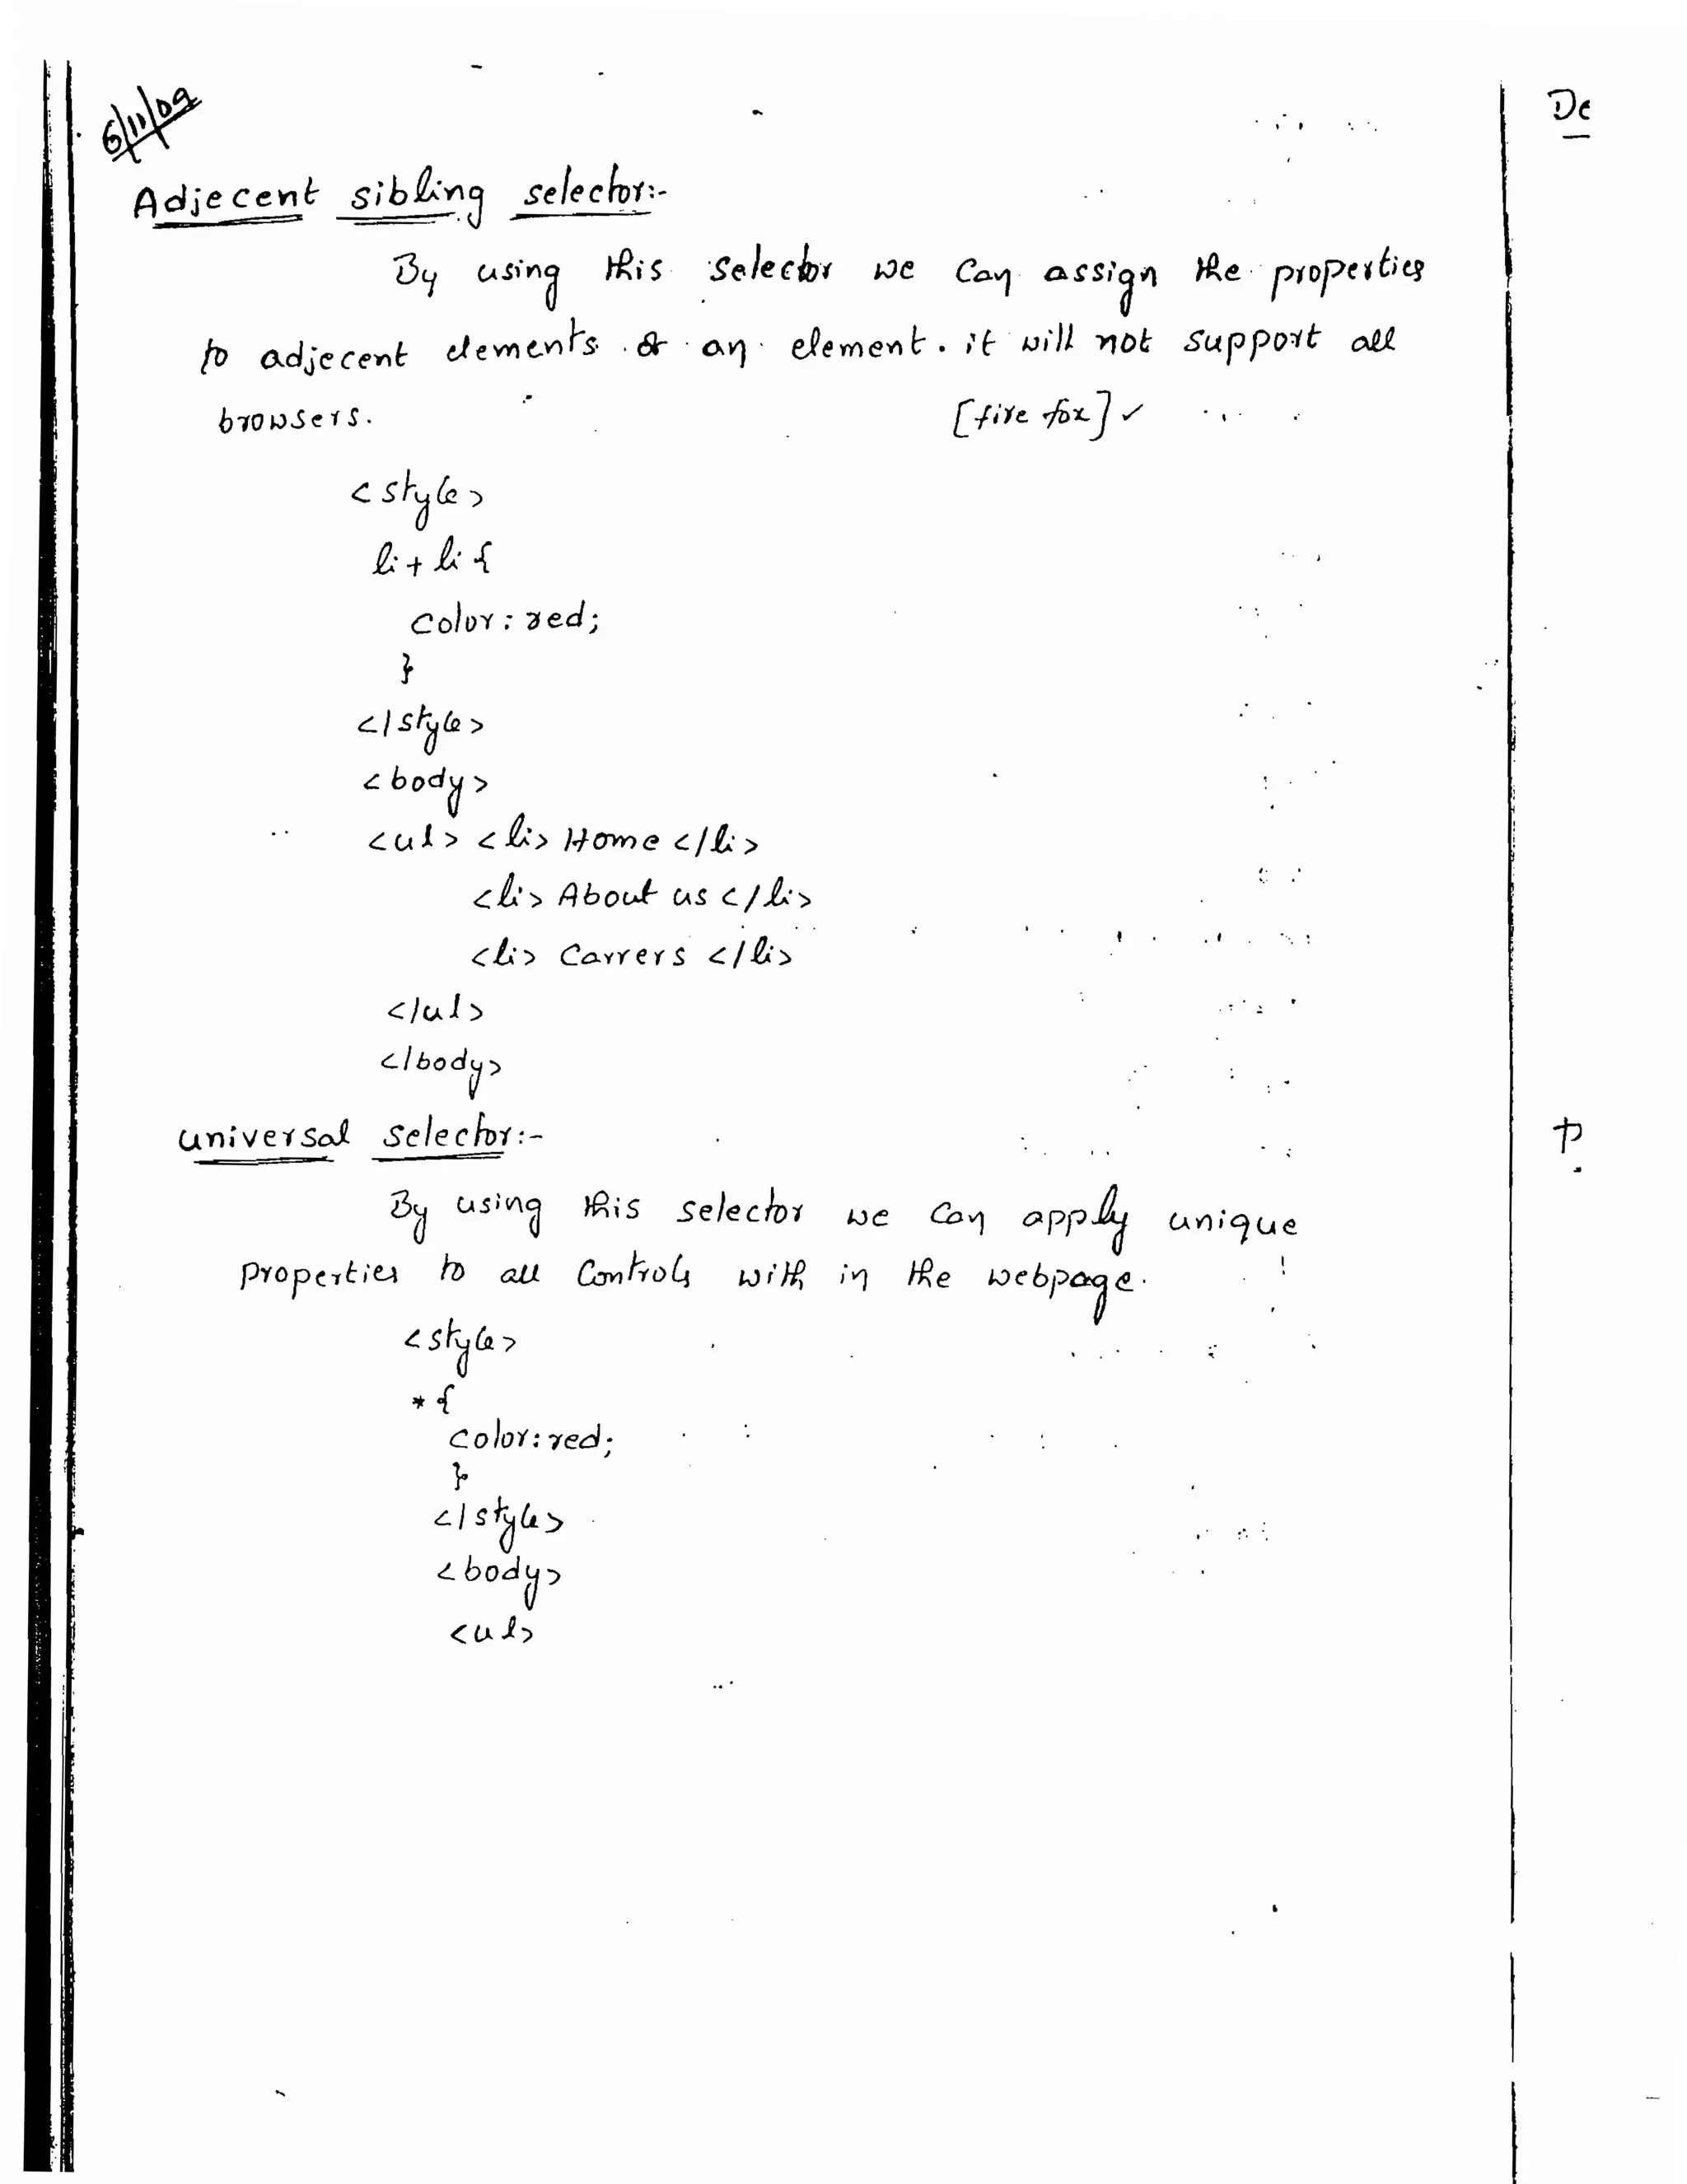 6/11/09
Adjecent sibling selector:-
By using this selector we can assign the properties
to adjecent elements & an element. it will not support all
browsers. [fire fox] ✓
<style>
li + li {
color: red;
}
</style>
<body>
<ul> <li> Home </li>
<li> About us </li>
<li> Carrers </li>
</ul>
</body>
universal selector:-
By using this selector we can apply unique
properties to all Controls with in the webpage.
<style>
* {
color: red;
}
</style>
<body>
<ul>
De
P